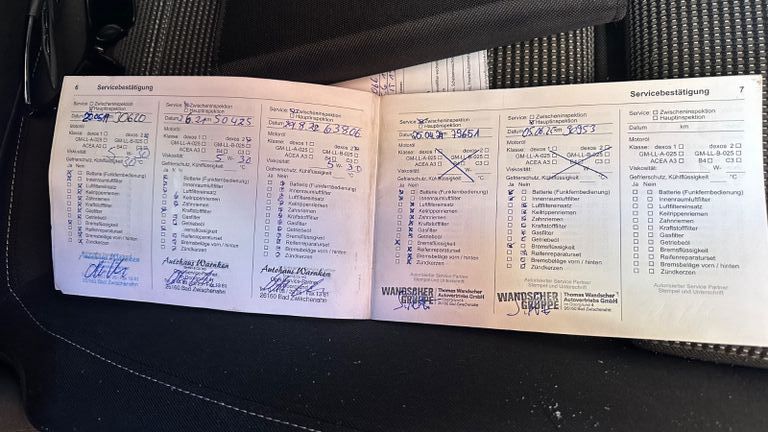 6
Servicebestätigung
Service:
Zwischeninspektion
Hauptinspektion
Datum
km
30620
Motoröl
Klasse:
dexos 1
dexos 2
GM-LL-A-025
GM-LL-B-025
ACEA A3
B4
C3
Viskosität:
5
W-
30
Gefrierschutz, Kühlflüssigkeit
°C
Ja
Nein
Batterie (Funkfernbedienung)
Innenraumluftfilter
Luftfiltereinsatz
Keilrippenriemen
Zahnriemen
Kraftstofffilter
Gasfilter
Getriebeöl
Bremsflüssigkeit
Reifenreparaturset
Bremsbeläge vorn / hinten
Zündkerzen
Autohaus Warnken
Service:
Zwischeninspektion
Hauptinspektion
Datum
50425
Motoröl
Klasse:
dexos 1
dexos 2
GM-LL-A-025
GM-LL-B-025
ACEA A3
B4
C3
Viskosität:
5
W-
30
Gefrierschutz, Kühlflüssigkeit
°C
Ja
Nein
Batterie (Funkfernbedienung)
Innenraumluftfilter
Luftfiltereinsatz
Keilrippenriemen
Zahnriemen
Kraftstofffilter
Gasfilter
Getriebeöl
Bremsflüssigkeit
Reifenreparaturset
Bremsbeläge vorn / hinten
Zündkerzen
Autohaus Warnken
26160 Bad Zwischenahn
Service:
Zwischeninspektion
Hauptinspektion
Datum
63806
Motoröl
Klasse:
dexos 1
dexos 2
GM-LL-A-025
GM-LL-B-025
ACEA A3
B4
C3
Viskosität:
5
W-
30
Gefrierschutz, Kühlflüssigkeit
°C
Ja
Nein
Batterie (Funkfernbedienung)
Innenraumluftfilter
Luftfiltereinsatz
Keilrippenriemen
Zahnriemen
Kraftstofffilter
Gasfilter
Getriebeöl
Bremsflüssigkeit
Reifenreparaturset
Bremsbeläge vorn / hinten
Zündkerzen
Autohaus Warnken
26160 Bad Zwischenahn
Servicebestätigung
7
Service:
Zwischeninspektion
Hauptinspektion
Datum
79651
Motoröl
Klasse:
dexos 1
dexos 2
GM-LL-A-025
GM-LL-B-025
ACEA A3
B4
C3
Viskosität:
W-
Gefrierschutz, Kühlflüssigkeit
°C
Ja
Nein
Batterie (Funkfernbedienung)
Innenraumluftfilter
Luftfiltereinsatz
Keilrippenriemen
Zahnriemen
Kraftstofffilter
Gasfilter
Getriebeöl
Bremsflüssigkeit
Reifenreparaturset
Bremsbeläge vorn / hinten
Zündkerzen
Autorisierter Service Partner
Stempel und Unterschrift
WANDSCHER
GRUPPE
Thomas Wandscher
Autovertriebs GmbH
26160 Bad Zwischenahn
Service:
Zwischeninspektion
Hauptinspektion
Datum
km
90953
Motoröl
Klasse:
dexos 1
dexos 2
GM-LL-A-025
GM-LL-B-025
ACEA A3
B4
C3
Viskosität:
W-
Gefrierschutz, Kühlflüssigkeit
°C
Ja
Nein
Batterie (Funkfernbedienung)
Innenraumluftfilter
Luftfiltereinsatz
Keilrippenriemen
Zahnriemen
Kraftstofffilter
Gasfilter
Getriebeöl
Bremsflüssigkeit
Reifenreparaturset
Bremsbeläge vorn / hinten
Zündkerzen
WANDSCHER
GRUPPE
Thomas Wandscher
Autovertriebs GmbH
26160 Bad Zwischenahn
Service:
Zwischeninspektion
Hauptinspektion
Datum
km
Motoröl
Klasse:
dexos 1
dexos 2
GM-LL-A-025
GM-LL-B-025
ACEA A3
B4
C3
Viskosität:
W-
Gefrierschutz, Kühlflüssigkeit
°C
Ja
Nein
Batterie (Funkfernbedienung)
Innenraumluftfilter
Luftfiltereinsatz
Keilrippenriemen
Zahnriemen
Kraftstofffilter
Gasfilter
Getriebeöl
Bremsflüssigkeit
Reifenreparaturset
Bremsbeläge vorn / hinten
Zündkerzen
Autorisierter Service Partner
Stempel und Unterschrift